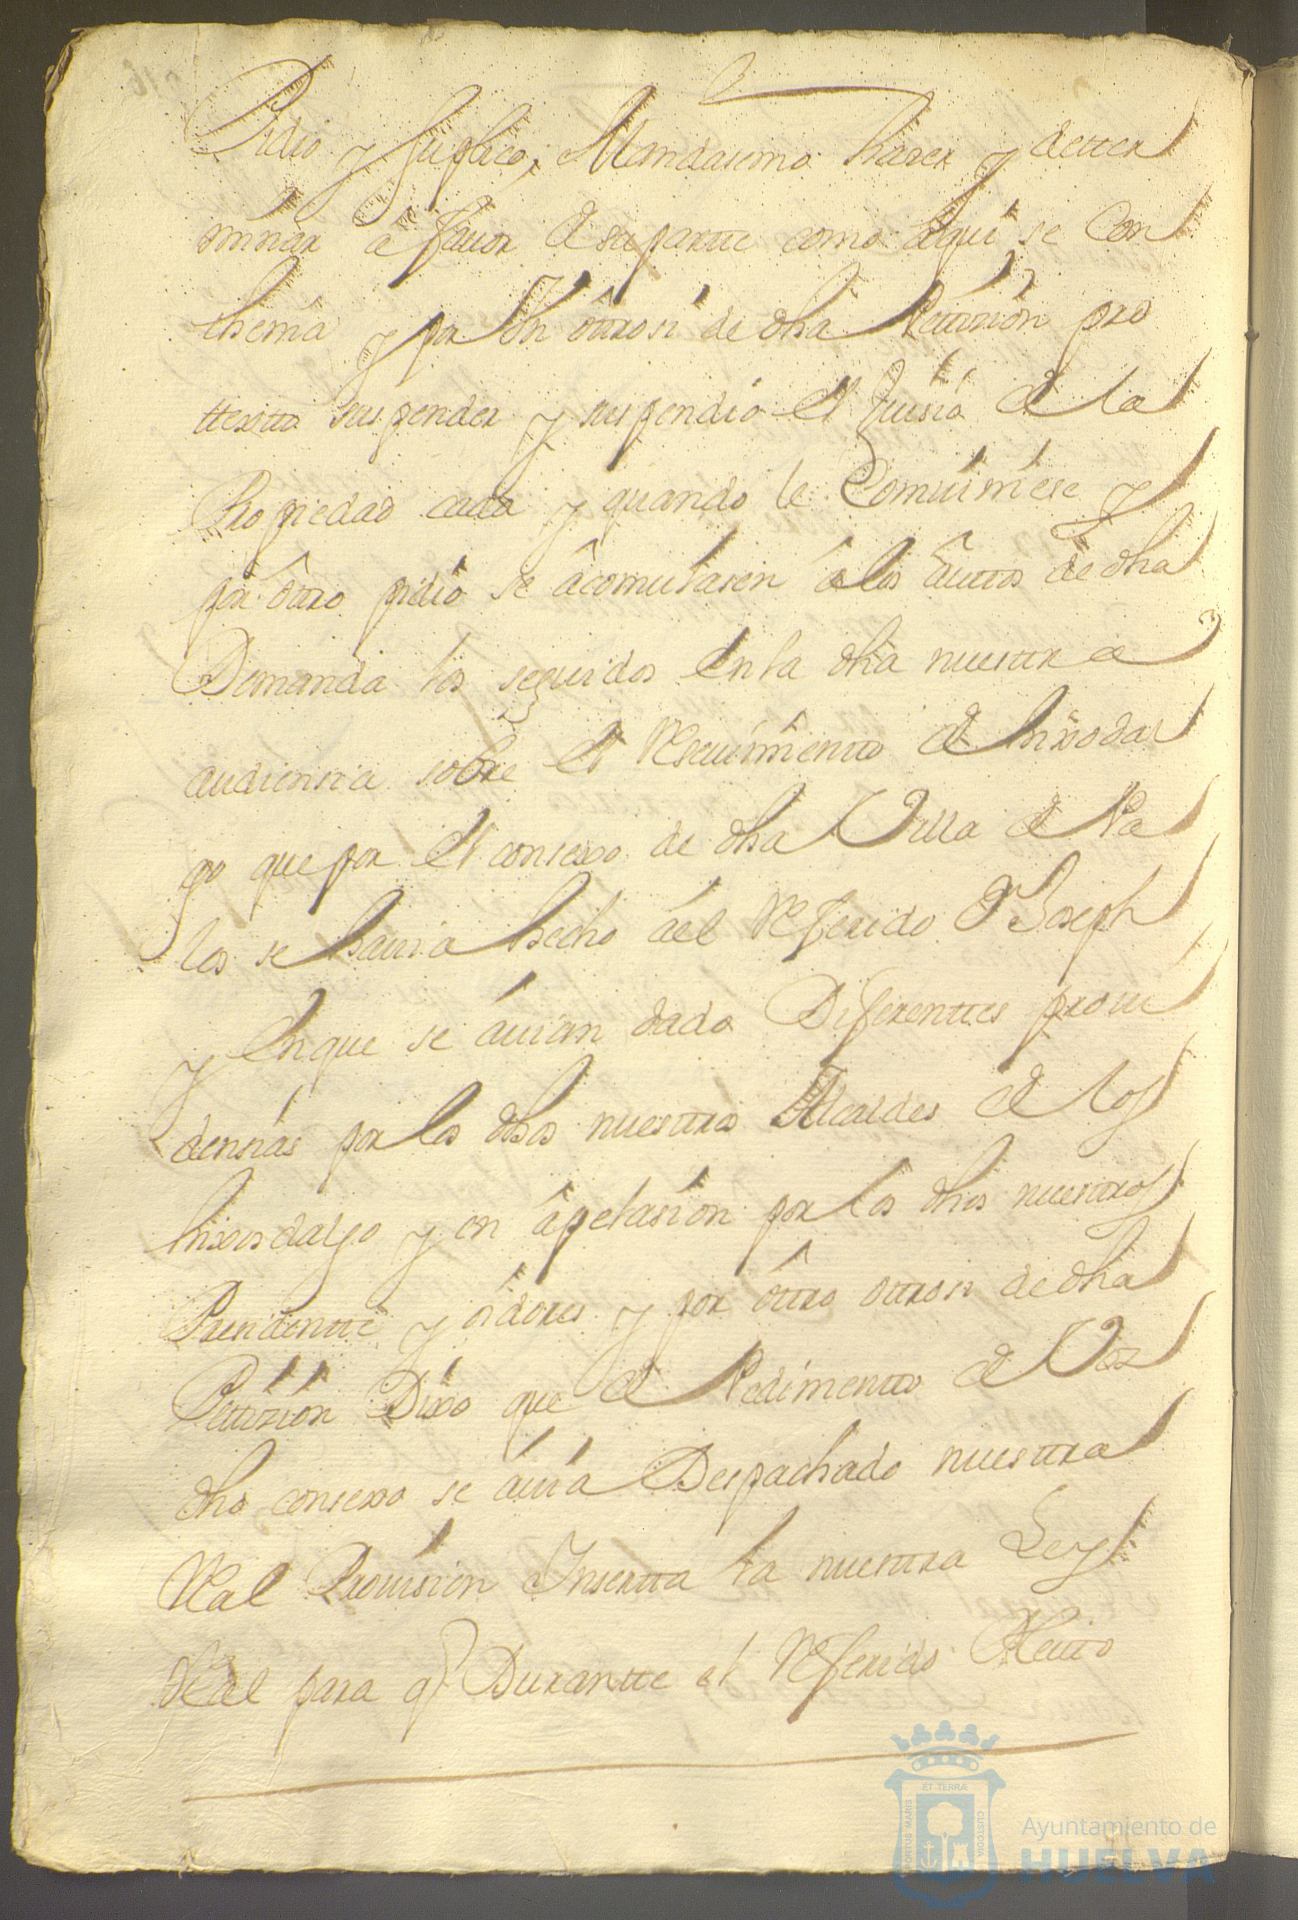 Pidio y suplico, Mandasemos haser y detter
minar â fauor de su partte como aqui se Con
thenia y por Un ôttrosi de dha Pettision pro
ttexto suspender y suspendio el Juisio de la
Propiedad cada y quando le Combiniese y
por ôttro pidio se âcomulasen â los Auttos de dha
Demanda los seguidos en la dha nuesttra
audiensia sobre el Reseuimientto de hixodal
go que por el consexo de dha Villa de Pa
los se hauia hecho âel Referido Dn Joseph
y en que se âuian dado Diferenttes proui
densias por los dhos nuesttros Alcaldes de los
hixosdalgo y en âpelasion por los dhos nuesttros
Presidentte y oidores y por ôttro ottrosi de dha
Pettizion Dixo que de Pedimentto de Vos
dho consexo se âuia Despachado nuesttra
Real Prouision Insertta la nuesttra Ley
Real para q Durantte el Referido Pleitto
ET TERRÆ
PORTUS MARIS
CUSTODIA
Ayuntamiento de
HUELVA